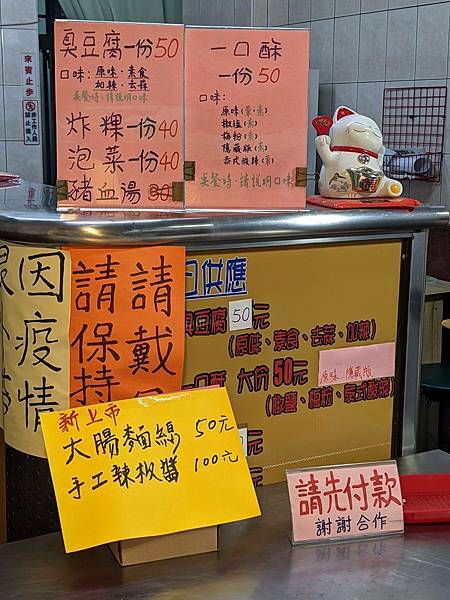 臭豆腐一份50
口味：原味．素食
加辣．去蒜
英餐時．請說明口味
炸粿一份40
泡菜一份40
豬血湯30
一口酥
一份50
口味：
原味(葷．素)
椒塩(素)
梅粉(素)
隱藏版(素)
泰式酸辣(素)
英餐時．請說明口味
來賓止步
非工作人員
請勿進入
因疫情
請戴口
請保持
日供應
臭豆腐50元
(原味、素食、去蒜、加辣)
大份50元
(椒鹽、梅粉、泰式酸辣)
原味 隱藏版
新上市
大腸麵線 50元
手工辣椒醬 100元
請先付款
謝謝合作